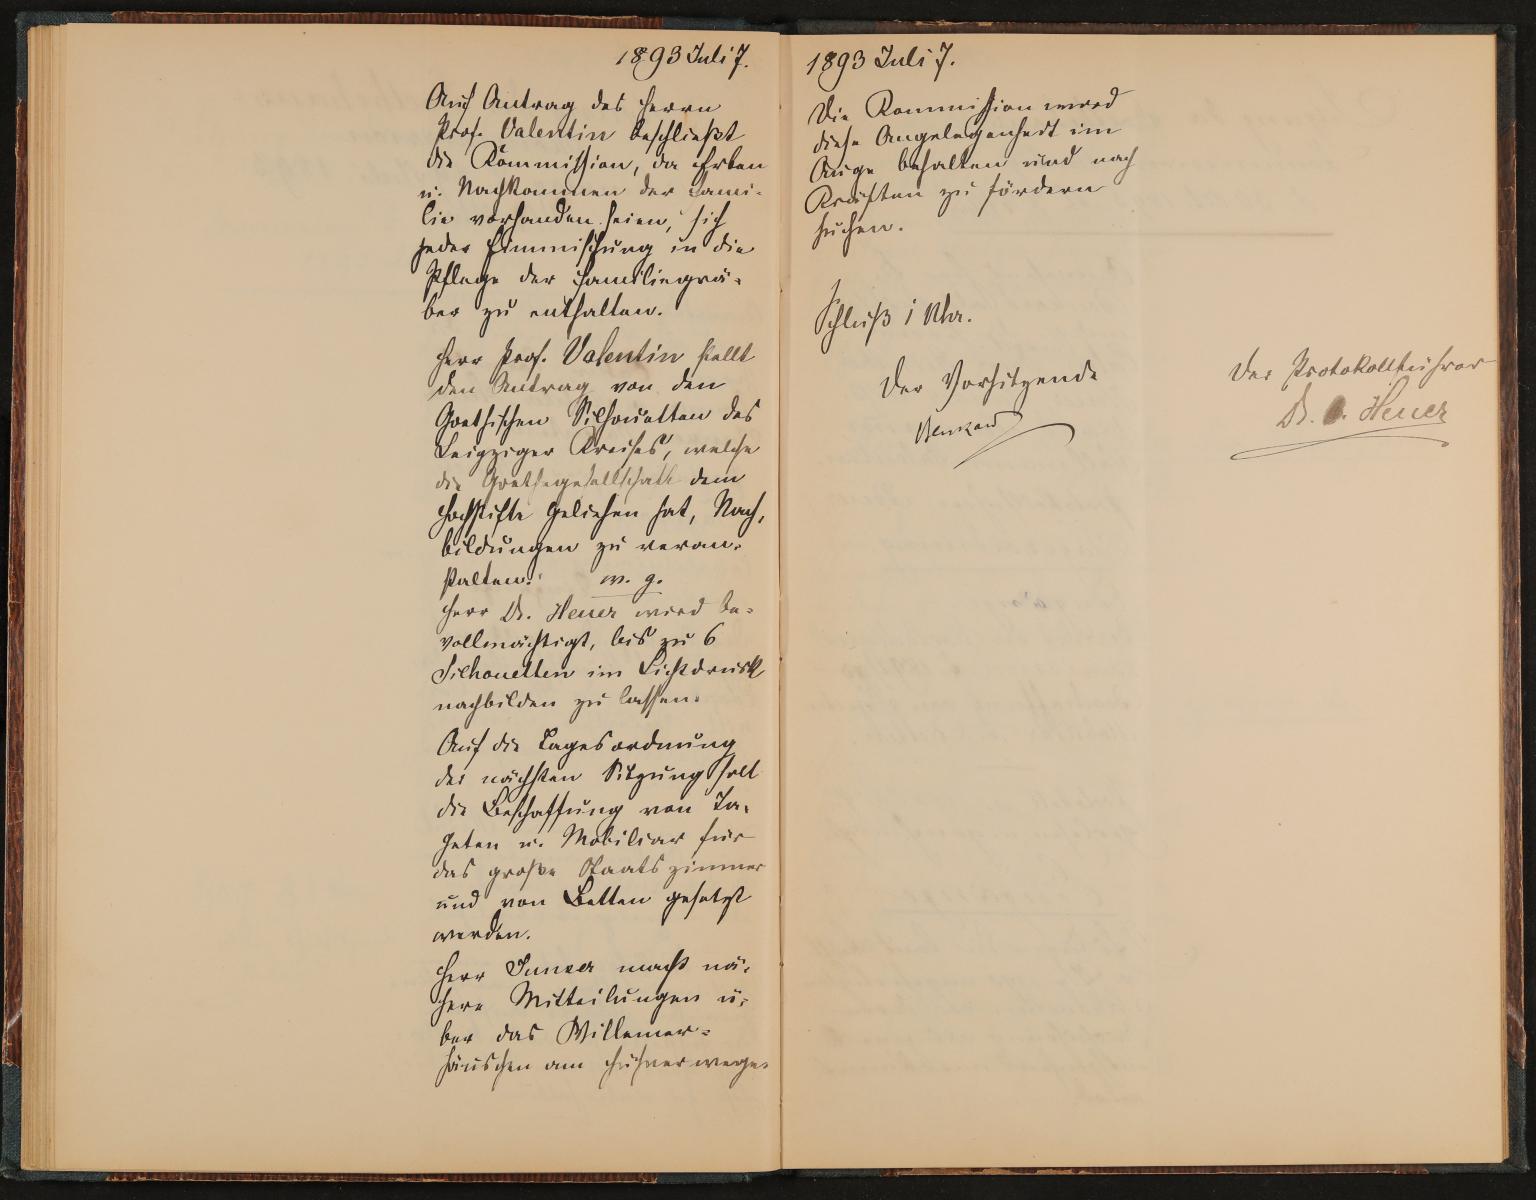 1893 Juli 7.
Auf Antrag des Herrn
Prof. Valentin beschließt
die Kommission, da Erben
u. Nachkommen der Fami-
lie vorhanden seien, sich
jeder Einmischung in die
Pflege der Familiengrä-
ber zu enthalten.
Herr Prof. Valentin stellt
den Antrag von den
Goethischen Silhouetten des
Leipziger Kreises, welche
die Goethegesellschaft dem
Hochstifte geliehen hat, Nach-
bildungen zu veran-
stalten. w. g.
Herr Dr. Heuer wird be-
vollmächtigt, bis zu 6
Silhouetten im Lichtdruck
nachbilden zu lassen.
Auf die Tagesordnung
der nächsten Sitzung soll
die Beschaffung von Ta-
peten u. Mobiliar für
das große Staatszimmer
und von Betten gesetzt
werden.
Herr Junker macht nä-
here Mitteilungen ü-
ber das Willemer-
häuschen am Hühnerwege.
1893 Juli 7.
Die Kommission wird
diese Angelegenheit im
Auge behalten und nach
Kräften zu fördern
suchen.
Schluß 1 Uhr.
Der Vorsitzende
Der Protokollführer
Benkard
Dr. O. Heuer